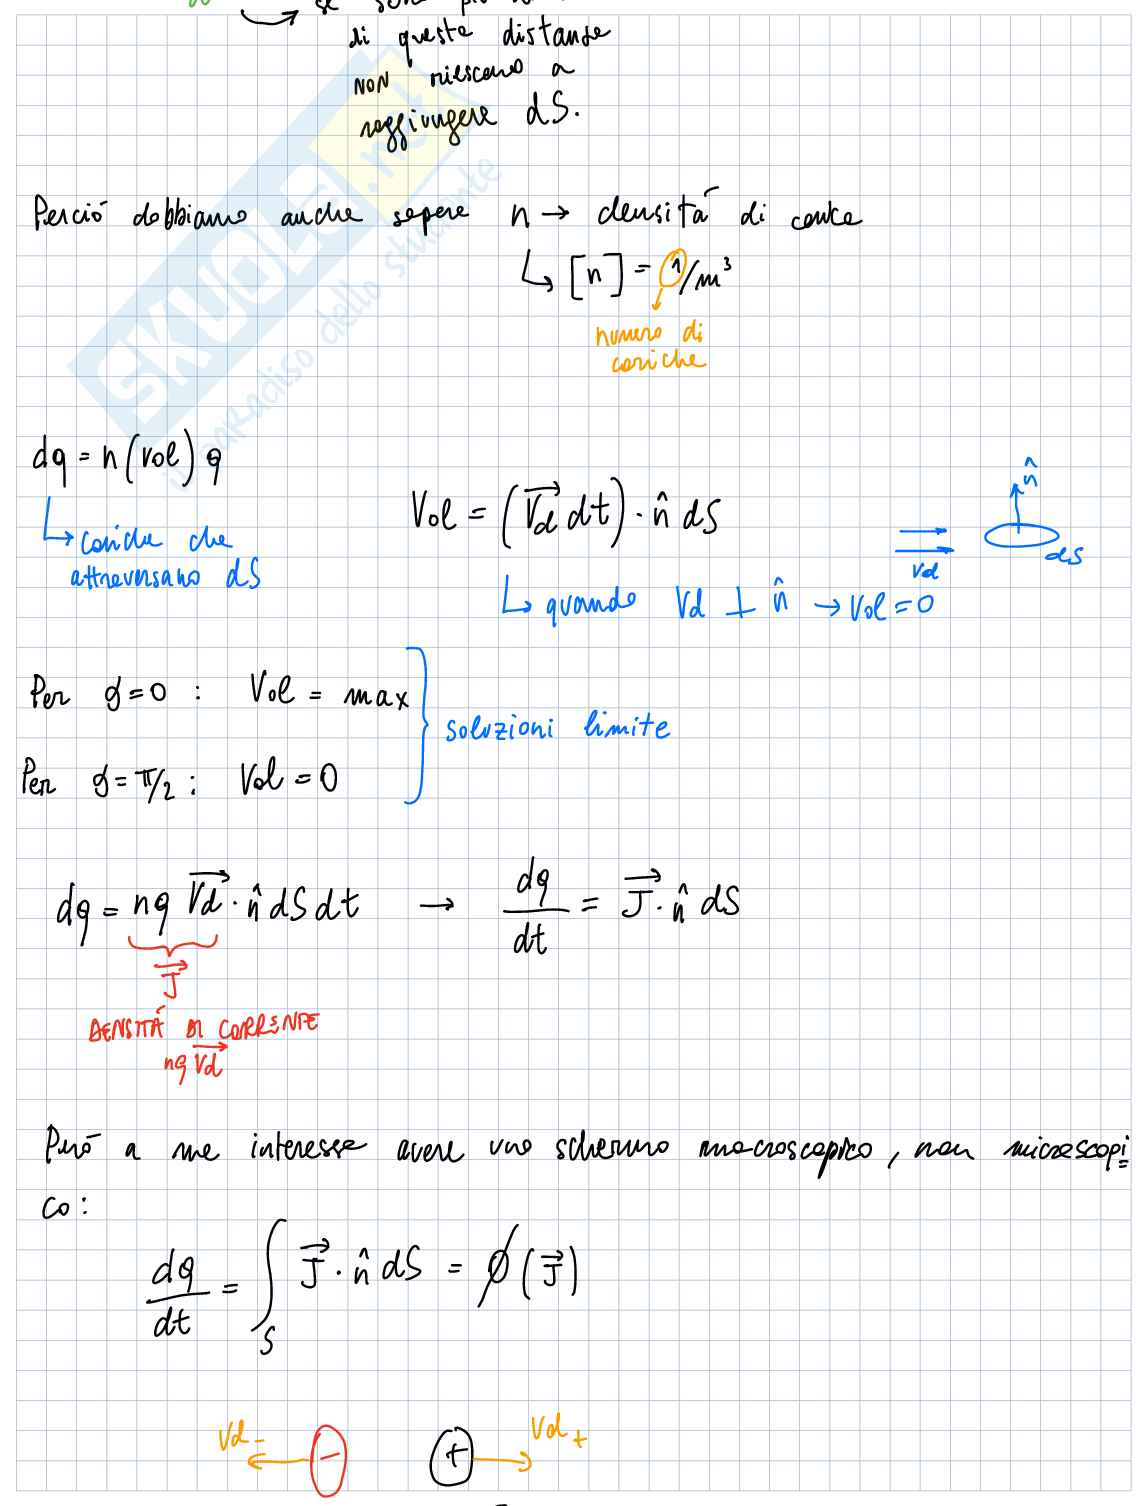 di queste distanze
NON riescono a
raggiungere dS.
Perció dobbiamo anche sapere n → densitá di carica
↳ [n] = 1/m³
numero di
cariche
dq = n (Vol) q
↳ cariche che
attraversano dS
Vol = (Vd dt) · n̂ dS
n̂
dS
Vd
↳ quando Vd ⊥ n̂ → Vol = 0
Per ϑ = 0 : Vol = max
soluzioni limite
Per ϑ = π/2 : Vol = 0
dq = nq Vd · n̂ dS dt → dq/dt = J · n̂ dS
J
DENSITÁ DI CORRENTE
nq Vd
Peró a me interessa avere uno schermo macroscopico, non microscopi
co:
dq/dt = ∫S J · n̂ dS = Ø (J)
Vd - − + Vd +
SKUOLA.net
il paradiso dello studente